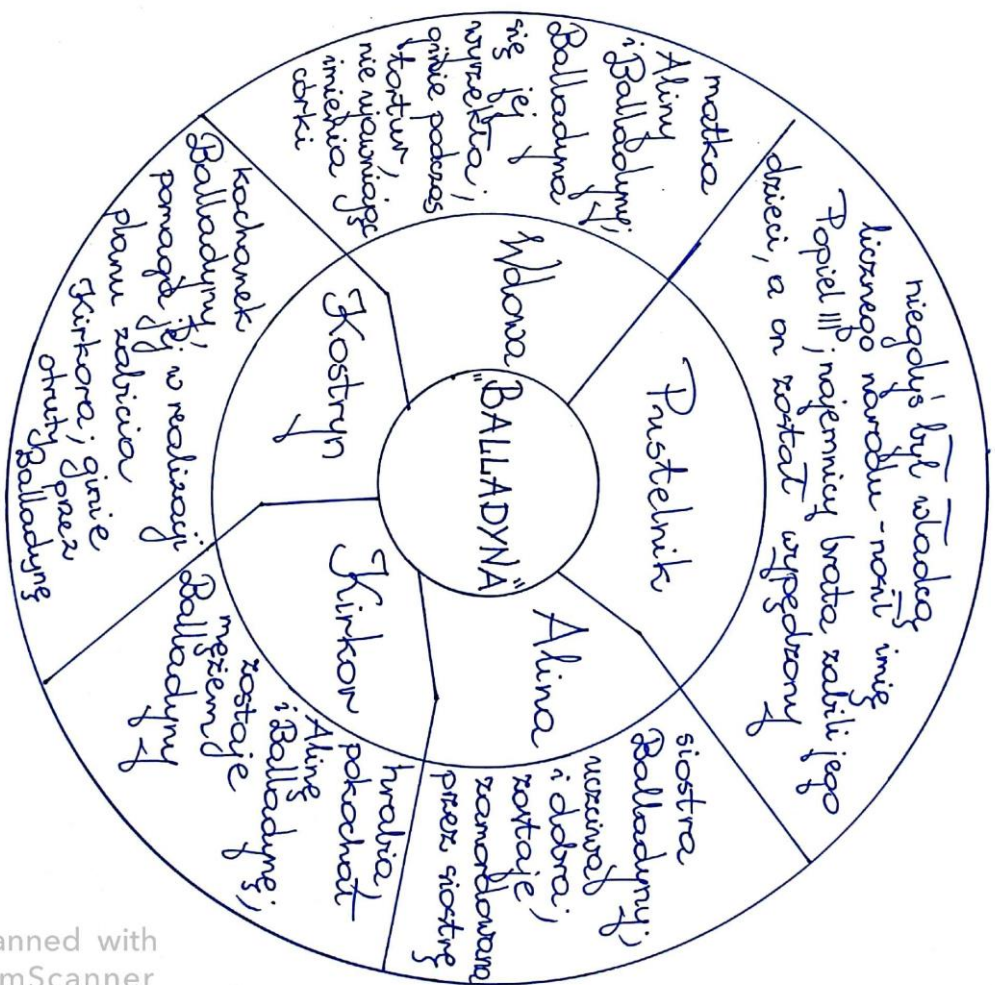 "BALLADYNA"
Pustelnik
niegdyś był władcą
licznego narodu - nosił imię
Popiel III; najemnicy brata zabili jego
dzieci, a on został wypędzony
Alina
siostra
Balladyny;
uczciwa
i dobra;
zostaje
zamordowana
przez siostrę
Kirkor
hrabia,
pokochał
Alinę
i Balladynę;
zostaje
mężem
Balladyny
Kostryn
kochanek
Balladyny;
pomaga jej w realizacji
planu zabicia
Kirkora; ginie
otruty przez
Balladynę
Wdowa
matka
Aliny
i Balladyny;
Balladyna
się jej
wyrzekła;
ginie podczas
tortur,
nie ujawniając
imienia
córki
anned with
mScanner